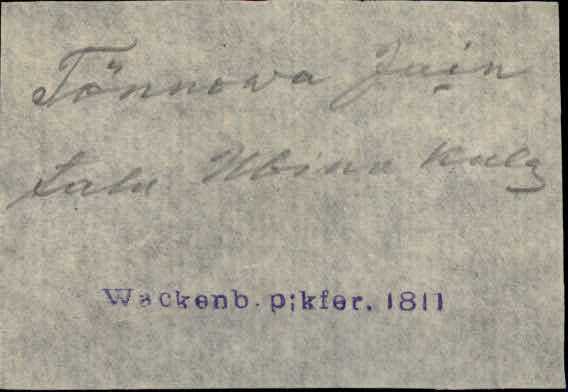 Tönnova Jaan
talu Ubina küla
Wackenb. p;kfer. 1811